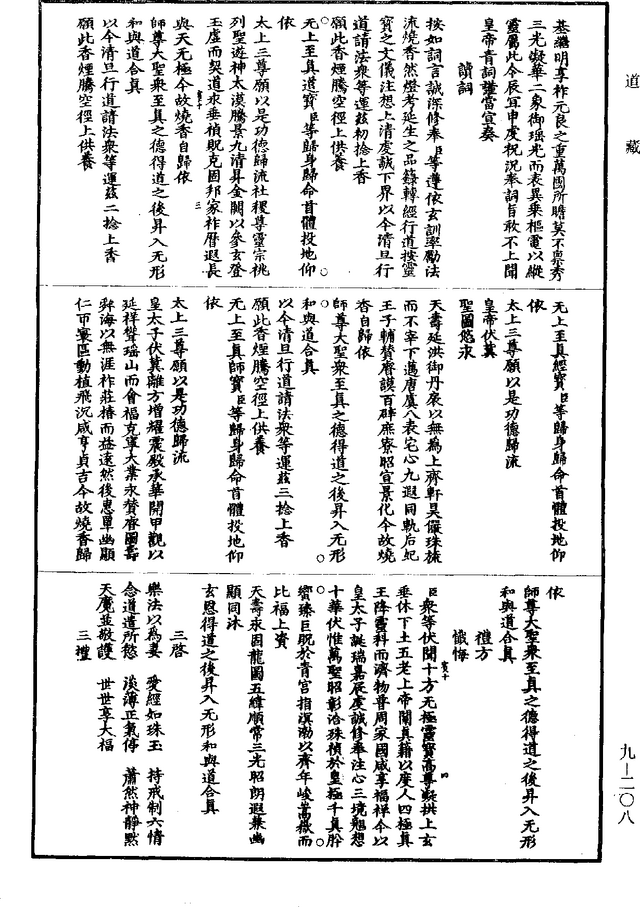 道藏
基繼明享祚元良之重萬國所瞻莫不稟秀
三光凝華二象御瑶光而表異乗樞電以縱
靈屬此今辰耳申虔祝況奉詞旨敢不上聞
皇帝青詞謹當宣奏
讀詞
按如詞言誠深修奉臣等遵依玄訓率勵法
流燒香然燈考延生之品籙轉經行道按靈
寶之文儀注想上清虔誠下界以今清旦行
道請法衆等運茲初捻上香
願此香煙騰空徑上供養
无上至真道寶臣等歸身歸命首體投地仰
依
太上三尊願以是功德歸流社稷尊靈宗祧
列聖遊神太漠騰景九清昇金闕以參玄登
玉虚而契道永垂禎貺克固邦家祚曆遐長
與天无極今故燒香自歸依
師尊大聖衆至真之德得道之後昇入无形
和與道合真
以今清旦行道請法衆等運茲二捻上香
願此香煙騰空徑上供養
无上至真經寶臣等歸身歸命首體投地仰
依
太上三尊願以是功德歸流
皇帝伏冀
聖圖悠永
天壽延洪御丹扆以無為上齊軒昊儼珠旒
而不宰下邁唐虞八表宅心九遐同軌后妃
王子輔賛賡謨百辟庶寮昭宣景化今故燒
香自歸依
師尊大聖衆至真之德得道之後昇入无形
和與道合真
以今清旦行道請法衆等運茲三捻上香
願此香煙騰空徑上供養
无上至真師寶臣等歸身歸命首體投地仰
依
太上三尊願以是功德歸流
皇太子伏冀離方增耀震殿承華開甲觀以
延祥聲瑶山而會福克窜大業永賛睿圖壽
與海以無涯祚莊椿而益遠然後惠單幽顯
仁帀寰區動植飛沉咸亨貞吉今故燒香歸
依
師尊大聖衆至真之德得道之後昇入无形
和與道合真
禮方
懺悔
臣衆等伏聞十方无極靈寶高尊凝拱上玄
垂休下土五老上帝闡真籍以度人四極真
王降靈科而濟物普周家國咸享福祥今以
皇太子誕瑞嘉辰虔誠修奉注心三境翹想
十華伏惟萬聖昭彰洽珠禎於皇極千真肸
蠁臻巨貺於青宫指溟渤以齊年峻嵩嶽而
比福上資
天壽永固龍圖五緯順常三光昭朗遐兼幽
顯同沐
玄恩得道之後昇入无形和與道合真
三啓
樂法以為妻 愛經如珠玉 持戒制六情
念道遣所慾 淡薄正氣停 蕭然神靜默
天魔並敬護 世世享大福
三禮
九-二〇八